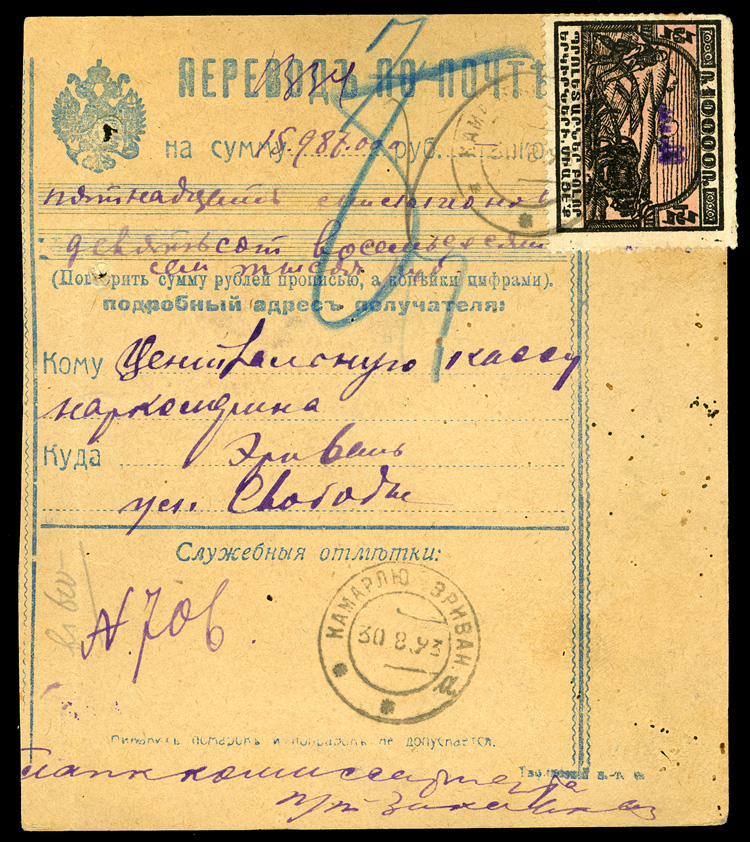 ПЕРЕВОДЪ ПО ПОЧТѢ
1334
на сумму 15.987.000 руб.
пятнадцать миллионов
девятьсот восемьдесят
сем тысяч руб
(Повторить сумму рублей прописью, а копѣйки цифрами).
подробный адресъ получателя:
Кому Центральную кассу
наркомфина
Куда Эривань
ул. Свободы
Служебныя отмѣтки:
N 706.
КАМАРЛЮ ЭРИВАН. а
30 8 23
Никакихъ помарокъ и поправокъ не допускается.
ՊՐՈԼԵՏԱՐՆԵՐ ԲՈԼՈՐ
ԵՐԿԻՐՆԵՐԻ, ՄԻԱՑԵՔ
Ռ. 10000 Ռ.
КАМАР